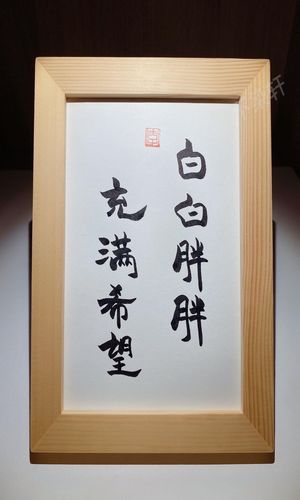 白白胖胖
充满希望